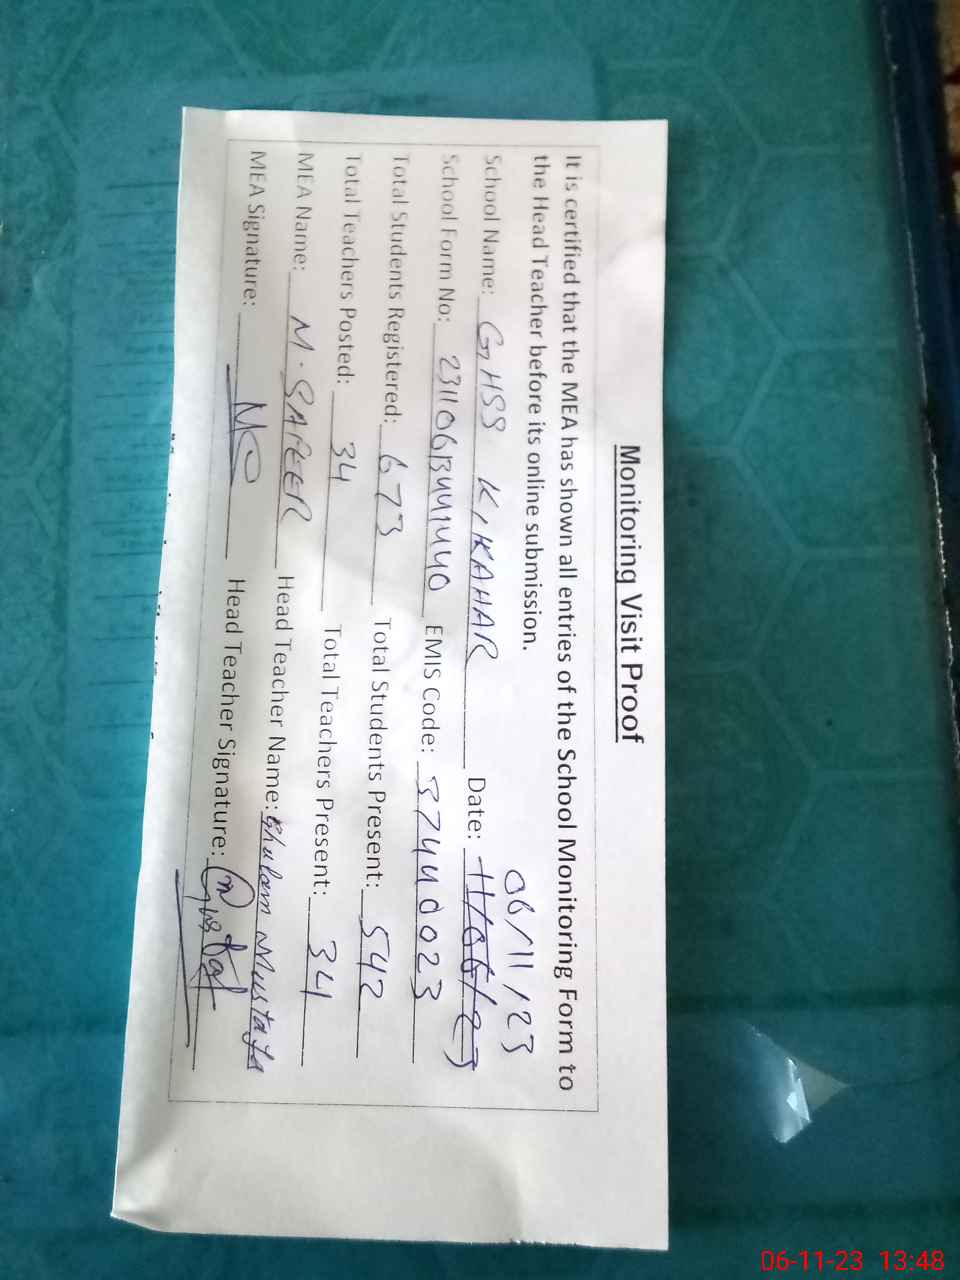 Monitoring Visit Proof
It is certified that the MEA has shown all entries of the School Monitoring Form to
the Head Teacher before its online submission.
06/11/23
School Name: GHSS KIKAHAR Date: 11/06/23
School Form No: EMIS Code: 37440023
Total Students Registered: 673 Total Students Present: 542
Total Teachers Posted: 34 Total Teachers Present: 34
MEA Name: M. SAFEER Head Teacher Name: Ghulam Mustafa
MEA Signature: Head Teacher Signature:
06-11-23 13:48